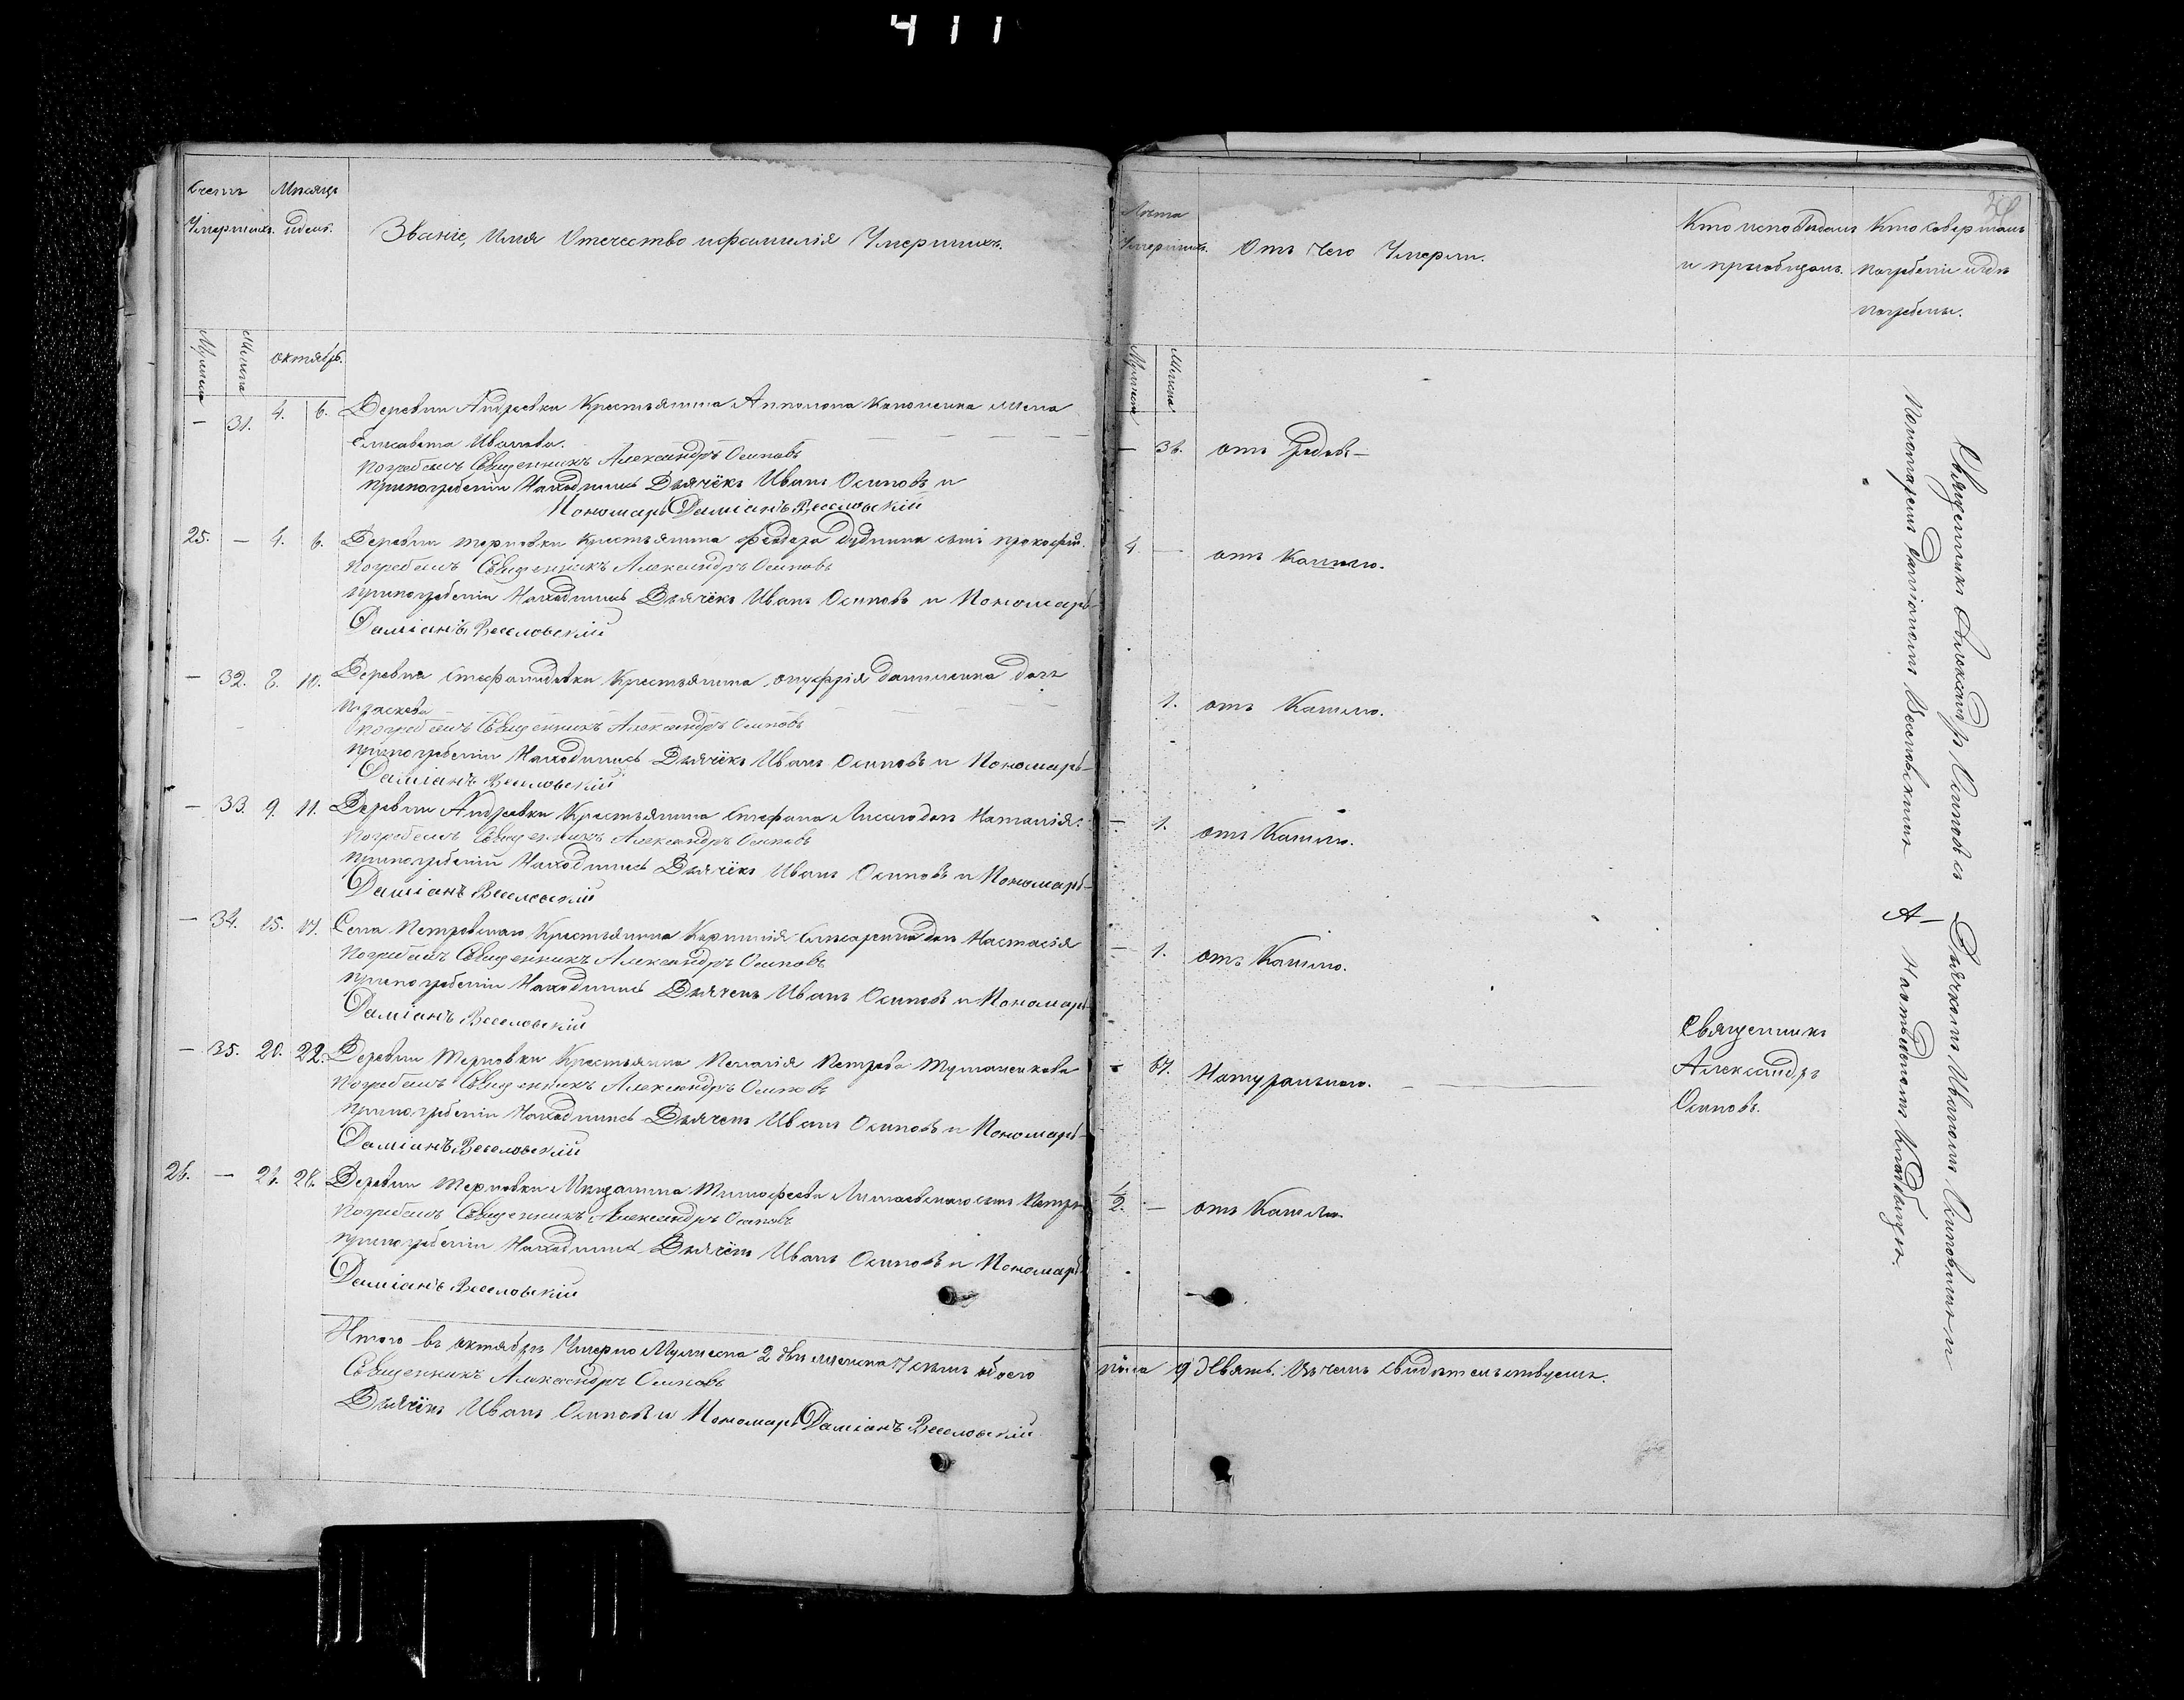 411
Счетъ Умершихъ.
Мѣсяцъ и день.
Званіе, Имя Отечество и фамилія Умершихъ.
Мужеска
Женска
октябрь.
— 31. 4. 6. Деревни Андреевки Крестьянина Жена
Елисавета Иванова.
Погребалъ Священникъ Александръ Осиповъ
При погребеніи Находились Дьячёкъ Иванъ Осиповъ и
Пономарь Даміанъ Веселовскій
25. — 4. 6. Деревни Терновки Крестьянина Феодора Дудника сынъ Прокофій.
Погребалъ Священникъ Александръ Осиповъ
При погребеніи Находились Дьячёкъ Иванъ Осиповъ и Пономарь
Даміанъ Веселовскій
— 32. 8. 10. Деревни Крестьянина Онуфрія Даниленка дочь
Параскева
Погребалъ Священникъ Александръ Осиповъ
При погребеніи Находились Дьячёкъ Иванъ Осиповъ и Пономарь
Даміанъ Веселовскій
— 33. 9. 11. Деревни Андреевки Крестьянина Стефана дочь Наталія.
Погребалъ Священникъ Александръ Осиповъ
При погребеніи Находились Дьячёкъ Иванъ Осиповъ и Пономарь
Даміанъ Веселовскій
— 34. 15. 17. Села Петровскаго Крестьянина дочь Настасія
Погребалъ Священникъ Александръ Осиповъ
При погребеніи Находились Дьячекъ Иванъ Осиповъ и Пономарь
Даміанъ Веселовскій
— 35. 20. 22. Деревни Терновки Крестьянка Пелагія Петрова
Погребалъ Священникъ Александръ Осиповъ
При погребеніи Находились Дьячекъ Иванъ Осиповъ и Пономарь
Даміанъ Веселовскій
26. — 28. Деревни Терновки Мещанина Тимофея сынъ Петръ
Погребалъ Священникъ Александръ Осиповъ
При погребеніи Находились Дьячёкъ Иванъ Осиповъ и Пономарь
Даміанъ Веселовскій
Итого въ октябрѣ Умерло Мужеска 2 два женска 7 семь обоего
Священникъ Александръ Осиповъ
Дьячёкъ Иванъ Осиповъ и Пономарь Даміанъ Веселовскій
Лѣта Умершихъ.
Отъ чего Умерли.
Кто исповѣдалъ и пріобщалъ.
Кто совершалъ погребеніе и гдѣ погребены.
Мужеска
Женска
— 36. отъ родовъ —
4. — отъ Кашлю.
1. отъ Кашлю.
— 1. отъ Кашлю.
— 1. отъ Кашлю.
67. Натуральною. —
Священникъ
Александръ
Осиповъ.
— отъ Кашлю.
пола 9 Девять. Въ чемъ свидѣтельствуемъ.
Священникъ Александръ Осиповъ съ Дьячкомъ Иваномъ Осиповымъ и
Пономаремъ Даміаномъ Веселовскимъ